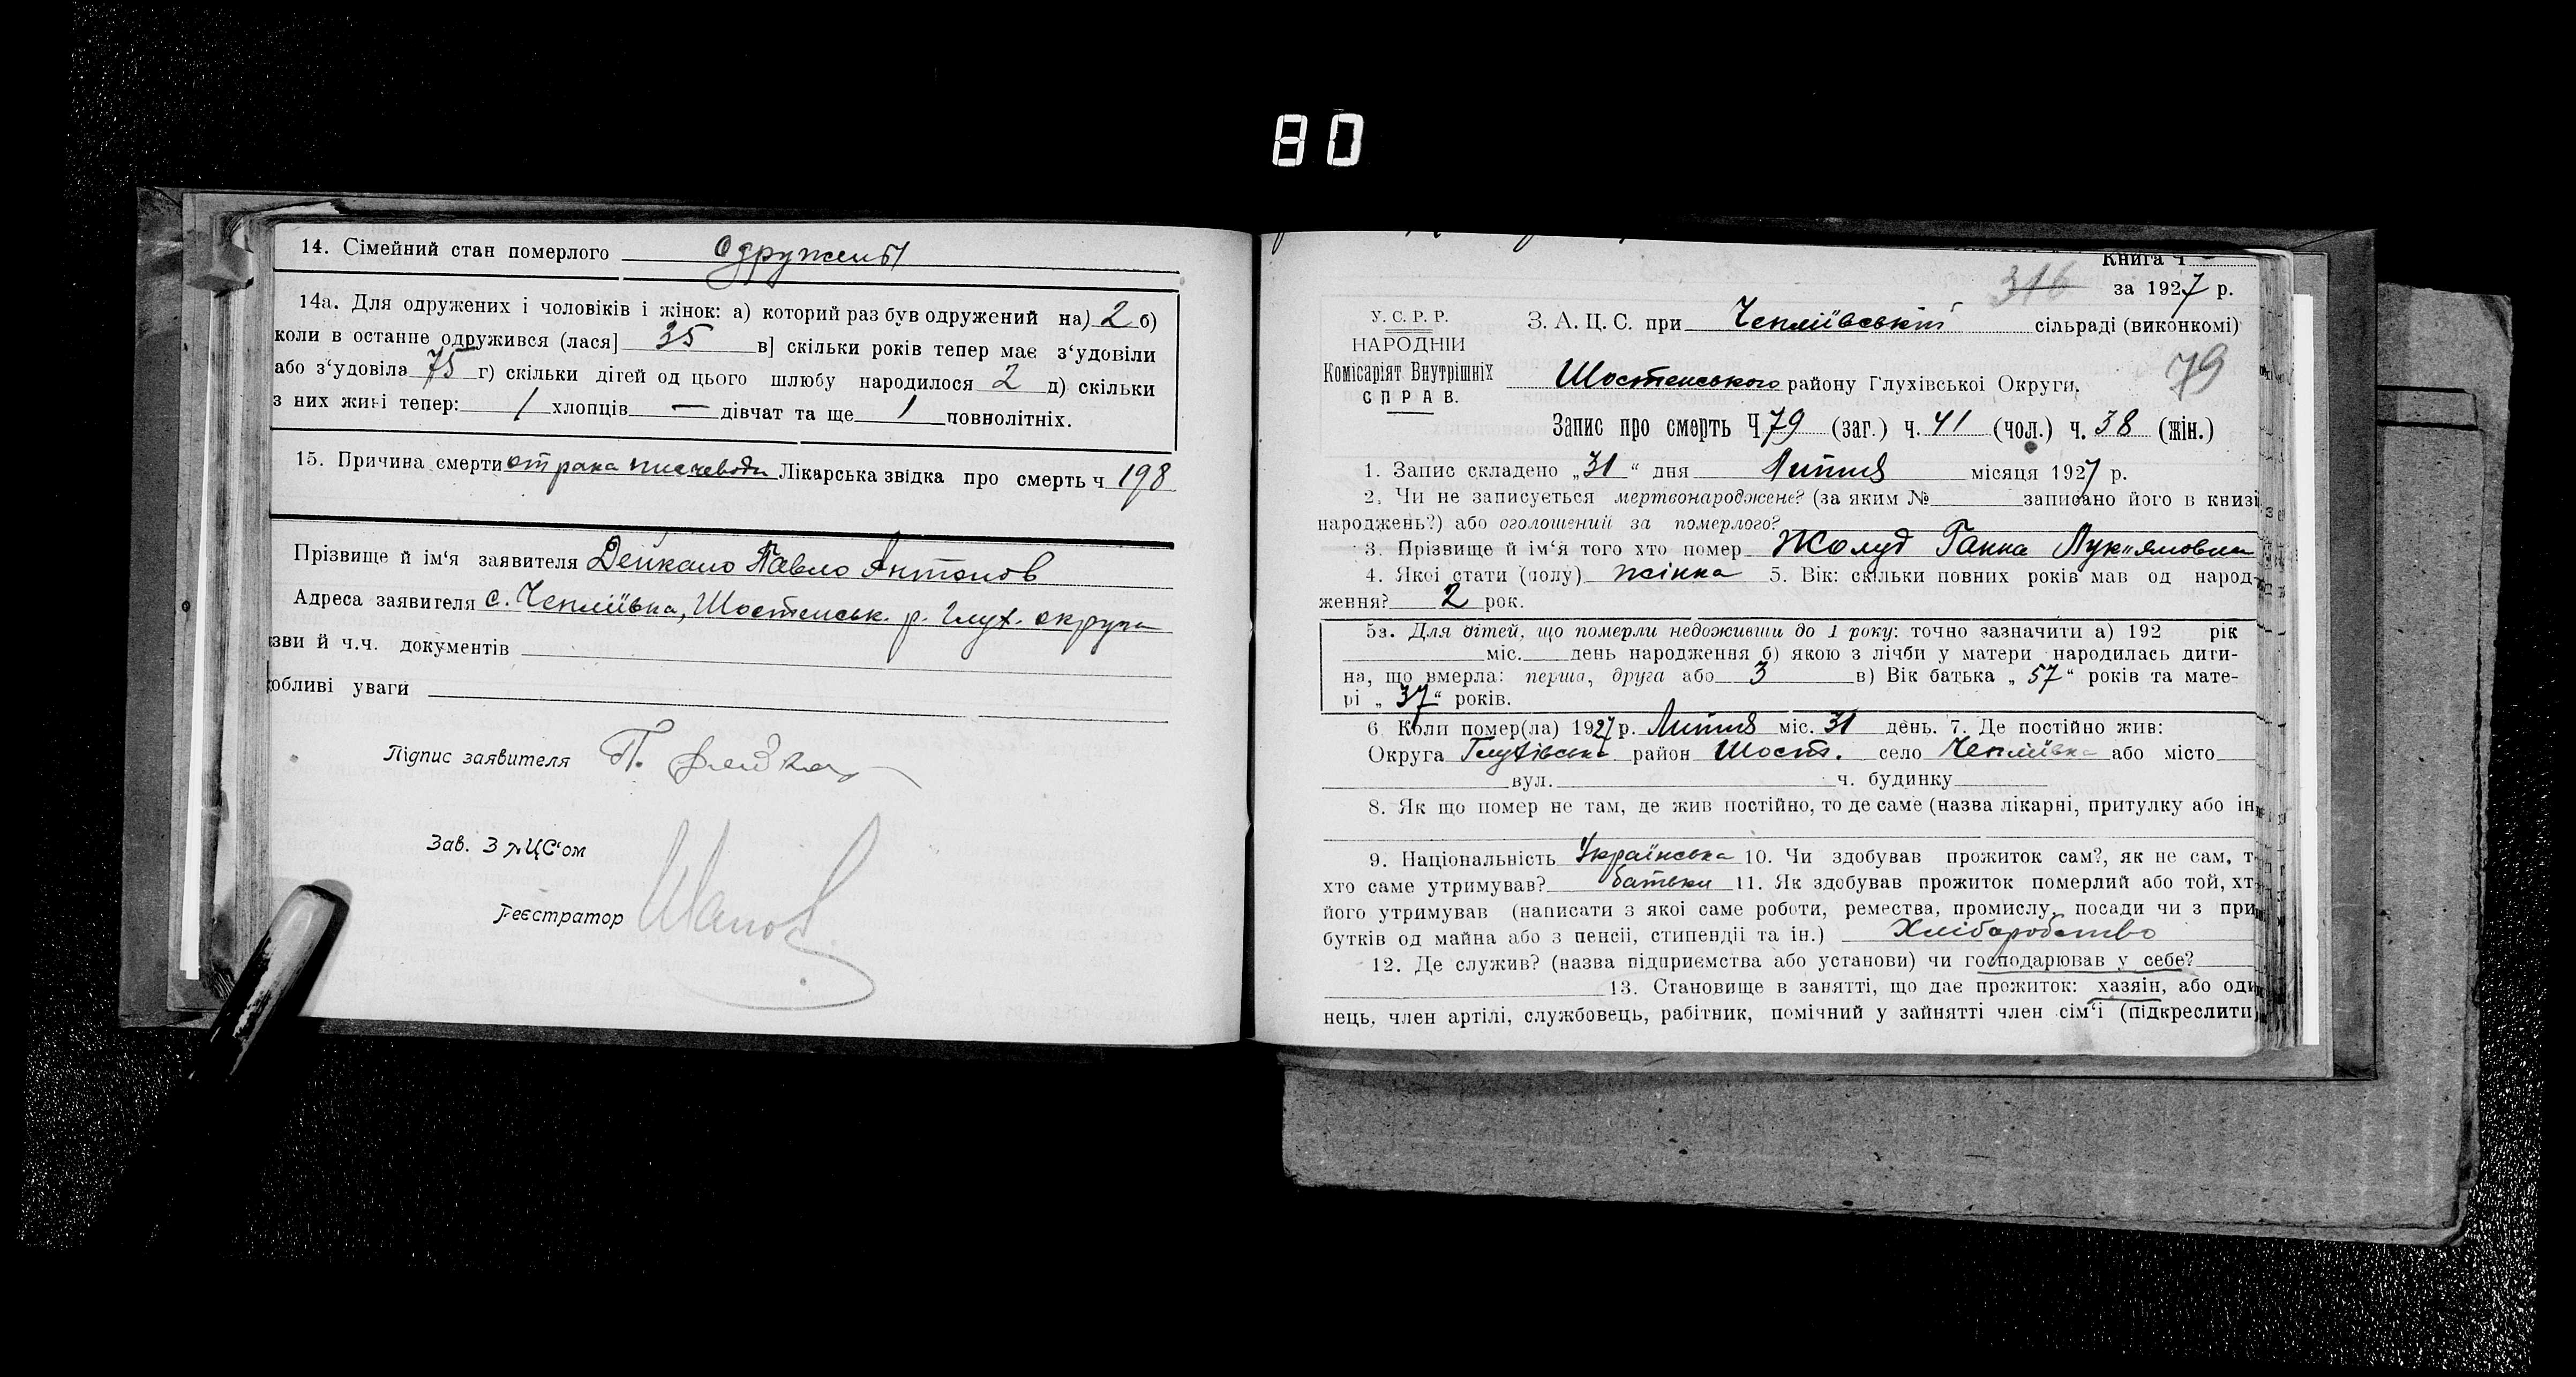 80
14. Сімейний стан померлого одружены
14а. Для одружених і чоловіків і жінок: а) которий раз був одружений на) 2 б)
коли в останнє одружився (лася] 35 в] скільки років тепер має з‘удовіли
або з‘удовіла 75 г) скільки дітей од цього шлюбу народилося 2 д) скільки
з них живі тепер: 1 хлопців — дівчат та ще 1 повнолітніх.
15. Причина смерти от рака пищевода Лікарська звідка про смерть ч 198
Прізвище й ім‘я заявителя Дейкало Павло Антонов
Адреса заявителя с. Чепліївка, Шостенськ. р. Глух. округи
зви й ч.ч. документів
обливі уваги
Підпис заявителя П.
Зав. ЗАЦС‘ом
Реєстратор
Книга ч
316 за 1927 р.
У. С. Р. Р.
НАРОДНІЙ
Комісаріят Внутрішніх
СПРАВ.
З. А. Ц. С. при Чепліївській сільраді (виконкомі)
79
Шостенського району Глухівської Округи,
Запис про смерть Ч 79 (заг.) ч. 41 (чол.) ч. 38 (жін.)
1. Запис складено „31“ дня Липня місяця 1927 р.
2. Чи не записується мертвонароджене? (за яким № записано його в книзі
народжень?) або оголошений за померлого?
3. Прізвище й ім‘я того хто помер Жолуд Ганна Лук"яновна
4. Якої стати (полу) жінка 5. Вік: скільки повних років мав од народ-
ження? 2 рок.
5а. Для дітей, що померли недоживши до 1 року: точно зазначити а) 192 рік
міс. день народження б) якою з лічби у матери народилась дити-
на, що вмерла: перша, друга або 3 в) Вік батька „57“ років та мате-
рі „37“ років.
6. Коли помер(ла) 1927 р. Липня міс. 31 день. 7. Де постійно жив:
Округа Глухівська район Шост. село Чепліївка або місто
вул. ч. будинку
8. Як що помер не там, де жив постійно, то де саме (назва лікарні, притулку або ін
9. Національність Українська 10. Чи здобував прожиток сам?, як не сам, т
хто саме утримував? батьки 11. Як здобував прожиток померлий або той, хт
його утримував (написати з якої саме роботи, ремества, промислу, посади чи з при
бутків од майна або з пенсії, стипендії та ін.) Хліборобство
12. Де служив? (назва підприємства або установи) чи господарював у себе?
13. Становище в занятті, що дає прожиток: хазяін, або оди
нець, член артілі, службовець, рабітник, помічний у зайнятті член сім‘ї (підкреслити